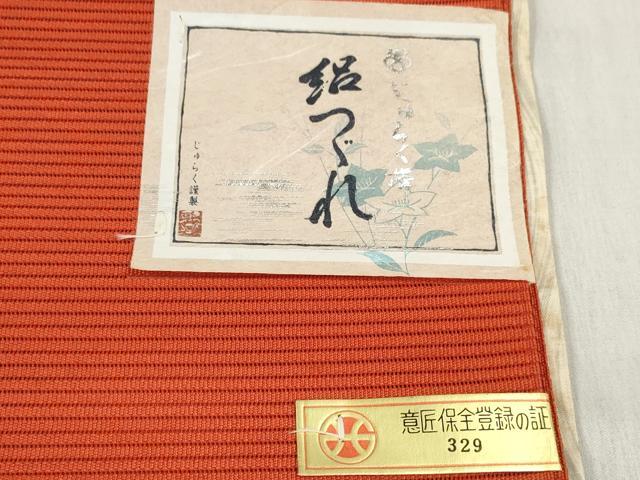 じゅらく
絽つづれ
じゅらく謹製
意匠保全登録の証
329